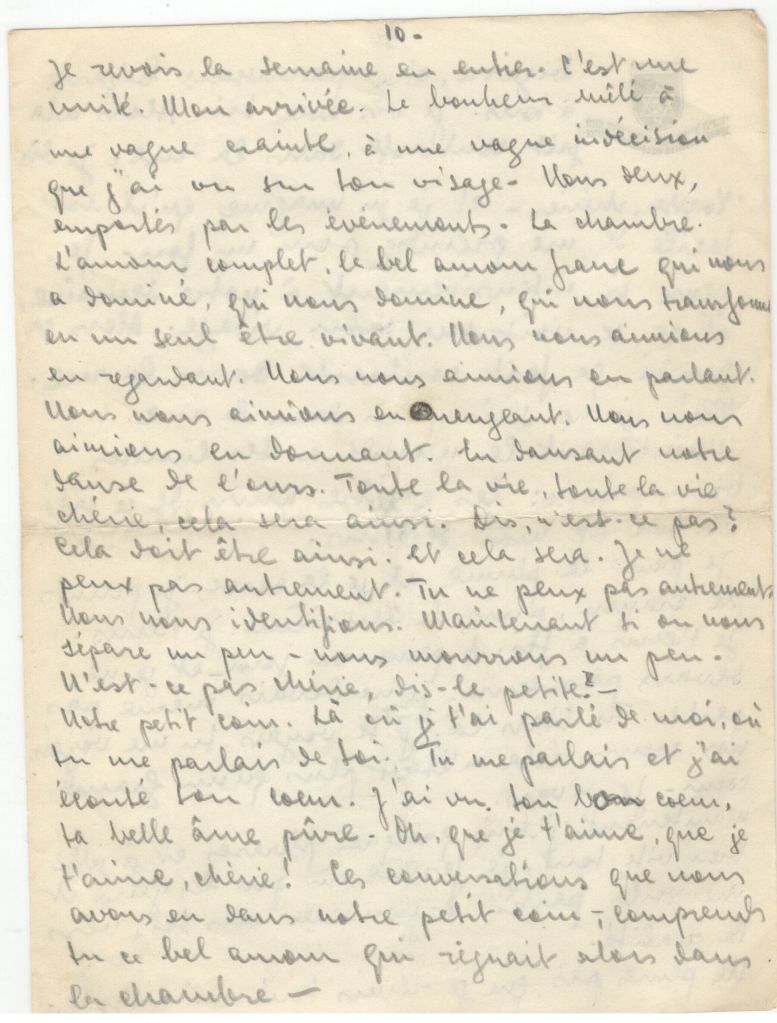 10-
Je revois la semaine en entier. C'est une
unité. Mon arrivée. Le bonheur mêlé à
une vague crainte, à une vague indécision
que j'ai vu sur ton visage. Nous deux,
emportés par les événements. La chambre.
L'amour complet, le bel amour franc qui nous
a dominé, qui nous domine, qui nous transforme
en un seul être vivant. Nous nous aimions
en regardant. Nous nous aimions en parlant.
Nous nous aimions en mengeant. Nous nous
aimions en donnant. En dansant notre
danse de l'ours. Toute la vie, toute la vie
chérie, cela sera ainsi. Dis, n'est-ce pas?
Cela doit être ainsi. Et cela sera. Je ne
peux pas autrement. Tu ne peux pas autrement.
Nous nous identifions. Maintenant si on nous
sépare un peu - nous mourrons un peu.
N'est-ce pas chérie, dis-le petite? -
Notre petit coin. Là où je t'ai parlé de moi, où
tu me parlais de toi. Tu me parlais et j'ai
écouté ton coeur. J'ai vu ton bon coeur,
ta belle âme pûre. Oh, que je t'aime, que je
t'aime, chérie! Ces conversations que nous
avons eu dans notre petit coin -, comprends
tu ce bel amour qui régnait alors dans
la chambre -